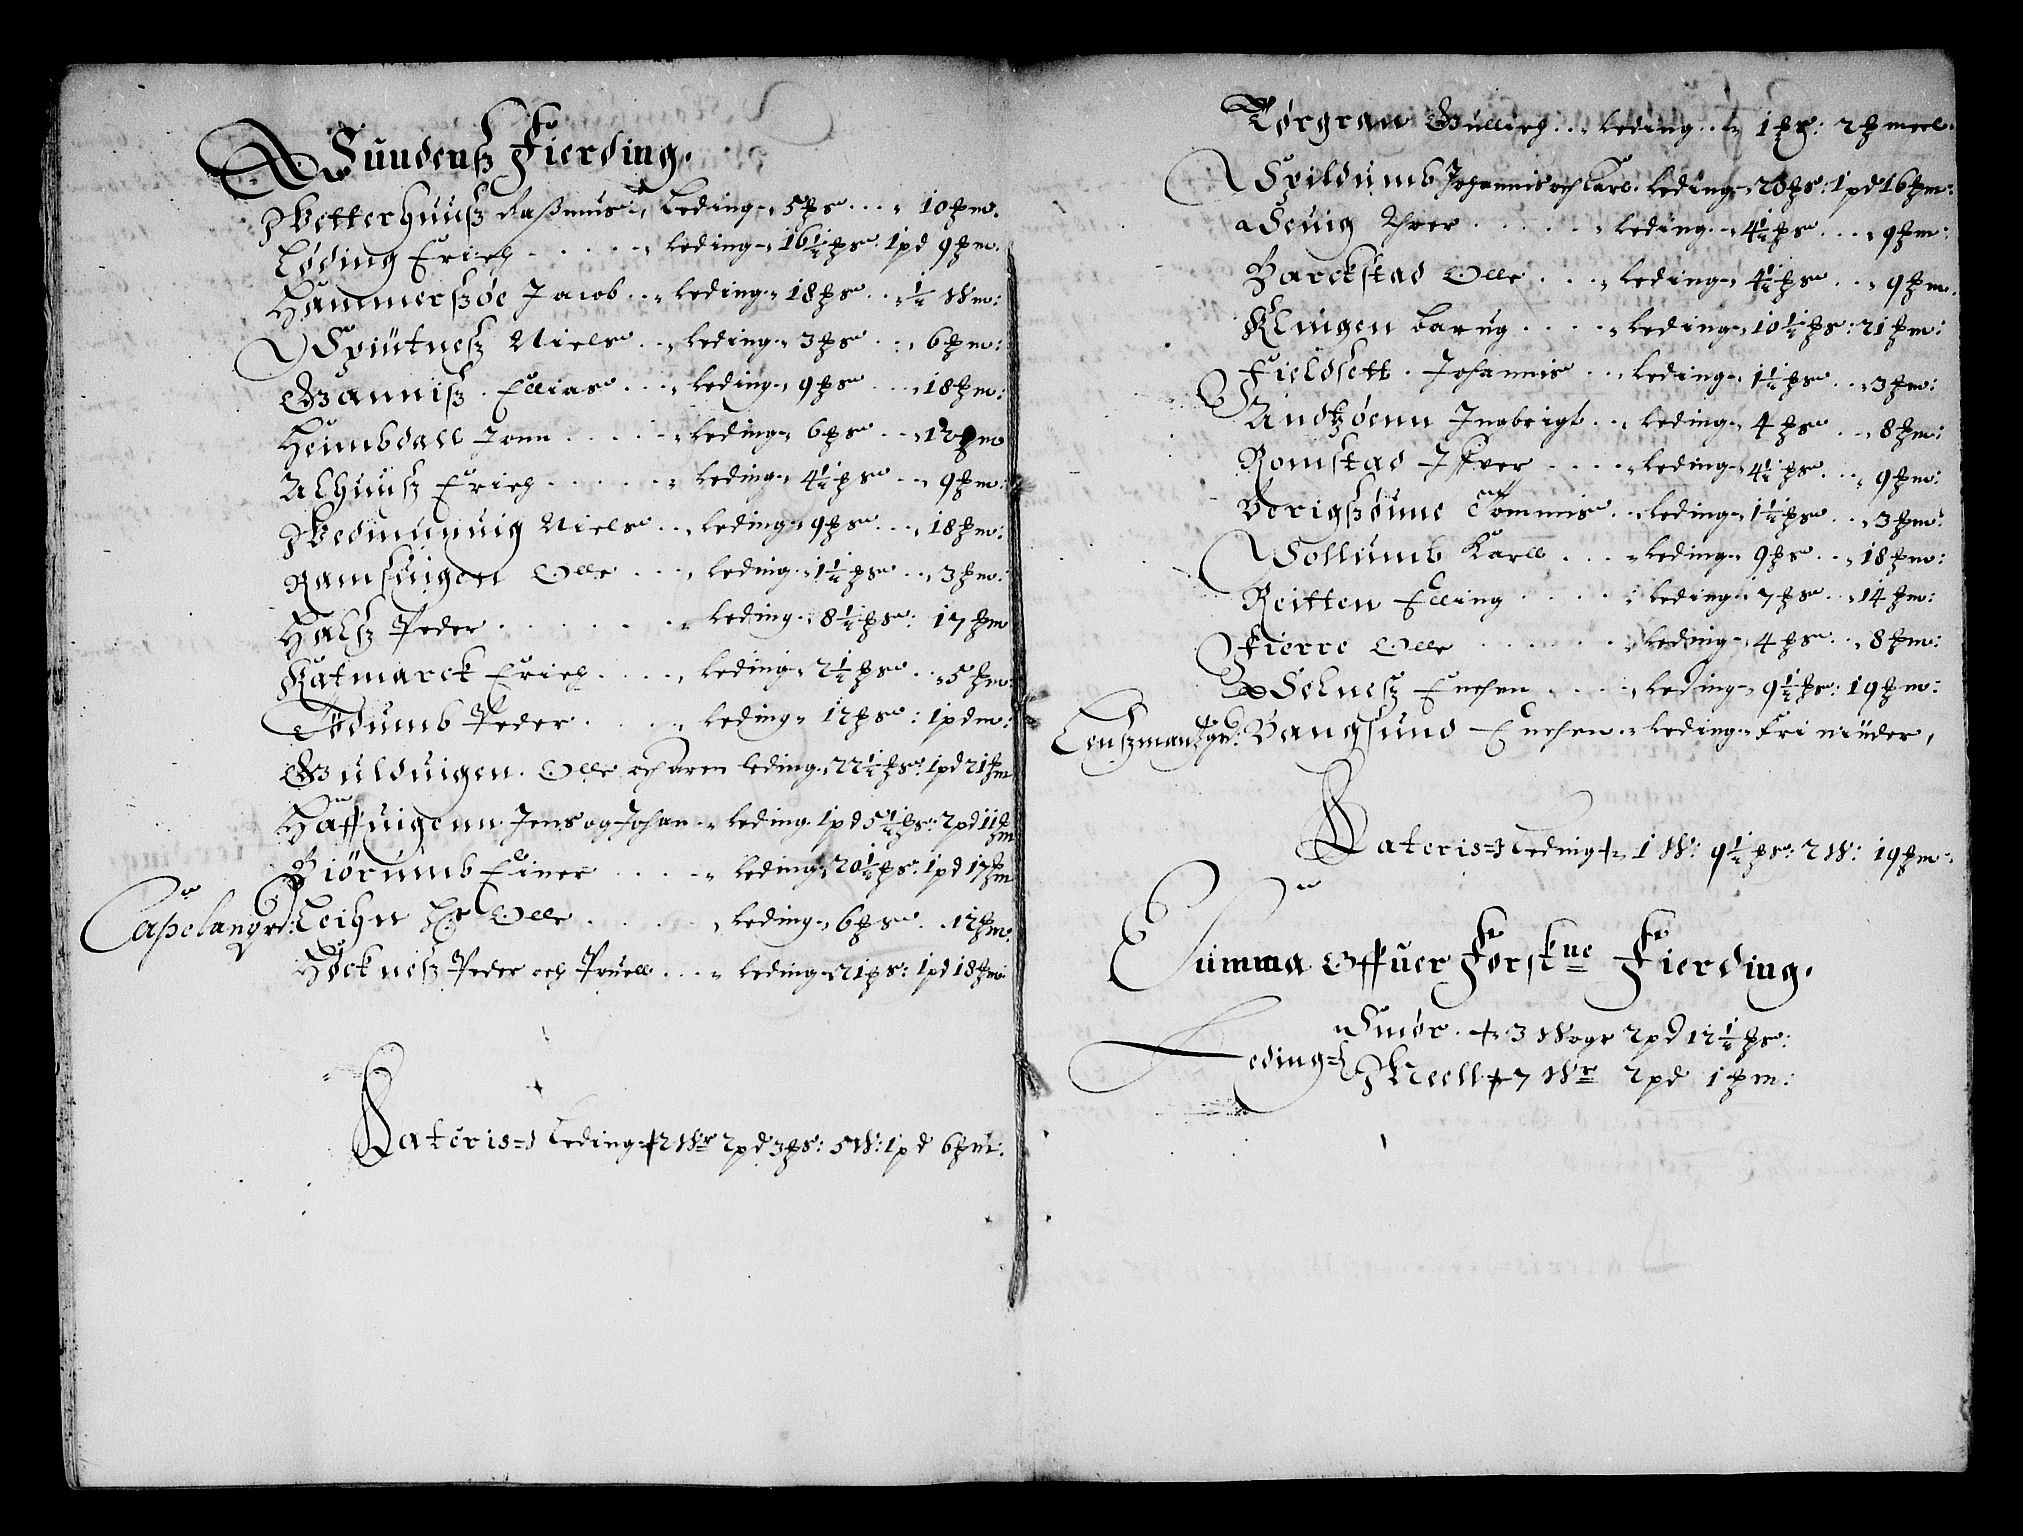 Sundensß Fierding.
Wetterhuuß Raßmus .. Leding .. 5 ℔s° ... 10 ℔m.
Løding Erich ..... Leding .. 16½ ℔s° 1pd 9 ℔m.
Hammersßøe Jacob .. Leding .. 18 ℔s° .. ½ W m:
Spiutneß Niels .. Leding .. 3 ℔s° .. 6 ℔m:
Ganniß . Ellias ... Leding .. 9 ℔s° ... 18 ℔m:
Heimbdall Jonn ..... Leding .. 6 ℔s° .. 12 ℔m
Alhuuß Erich ..... Leding .. 4½ ℔s° .. 9 ℔m:
Wedmunuig Niels .. Leding .. 9 ℔s° .. 18 ℔m:
Ramsuigen Olle ... Leding .. 1½ ℔s° .. 3 ℔m:
Halß Peder ....... Leding .. 8½ ℔s°: 17 ℔m
Katmarck Erich .... Leding .. 2½ ℔s° .. 5 ℔m:
Tødumb Peder .... Leding .. 12 ℔s°: 1pd m:
Gulduigen . Olle och Aren Leding .. 22½ ℔s° 1pd 21 ℔m
Haffuigenn . Jens og Johan .. Leding . 1pd 5½ ℔s: 2pd 11 ℔m
Biørumb Einer .... Leding .. 20½ ℔s: 1pd 17 ℔m
Capelangrd: Leihn Olle ..... Leding .. 6 ℔s° .. 12 ℔m:
Høckneß Peder och Pouell ... Leding .. 21 ℔s: 1pd 18 ℔m
Lateris Leding 2 Wr 2pd 3 ℔s: 5 W: 1pd 6 ℔m:
Torgran Gullich .. Leding .. 1 ℔s: 2 ℔ meel.
Spildumb Johannis och Carl . Leding .. 20 ℔s: 1pd 16 ℔m:
Seuig Iver ..... Leding .. 4½ ℔s° ... 9 ℔m:
Barckstad Olle ... Leding .. 4½ ℔s° ... 9 ℔m.
Klingen Barug .... Leding .. 10½ ℔s: 21 ℔m:
Fieldsett . Johannis .. Leding .. 1½ ℔s° .. 3 ℔m:
Andtzøenn Ingbrigt .. Leding .. 4 ℔s° ... 8 ℔m:
Romstad Iffver .... Leding .. 4½ ℔s° ... 9 ℔m:
Berigßøune Tommis .. Leding .. 1½ ℔s° .. 3 ℔m:
Sollumb Karll .... Leding .. 9 ℔s° .. 18 ℔m:
Reitten Elling .... Leding .. 7 ℔s° .. 14 ℔m:
Fierre Olle ...... Leding .. 4 ℔s° .. 8 ℔m:
Selneß Enchen .... Leding .. 9½ ℔s: 19 ℔m:
Lenßmandtzgr: Bangsund Enchen .. Leding .. Fri niuder,
Lateris Leding 1 W: 9½ ℔s: 2 W: 19 ℔m:
Summa Offuer Forskne Fierding.
Leding Smør . 3 Wogr 2pd 12½ ℔s:
Meell 7 Wr 2pd 1 ℔m: